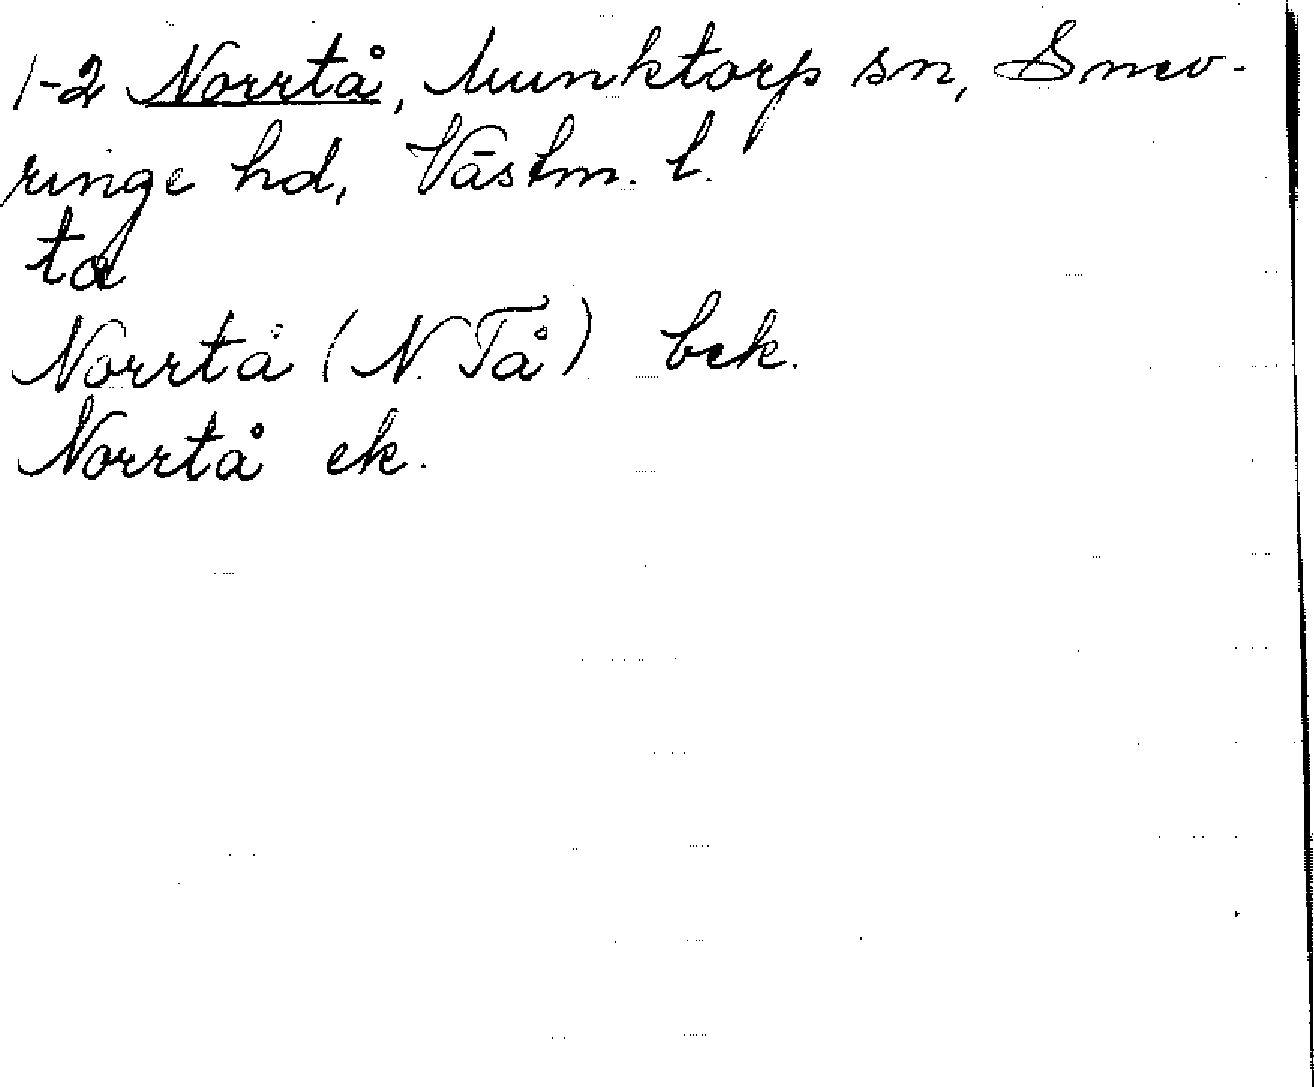 1-2 Norrtå, Munktorp sn, Snev-
ringe hd, Västm. l.
ta
Norrtå (N. Tå) bek.
Norrtå ek.